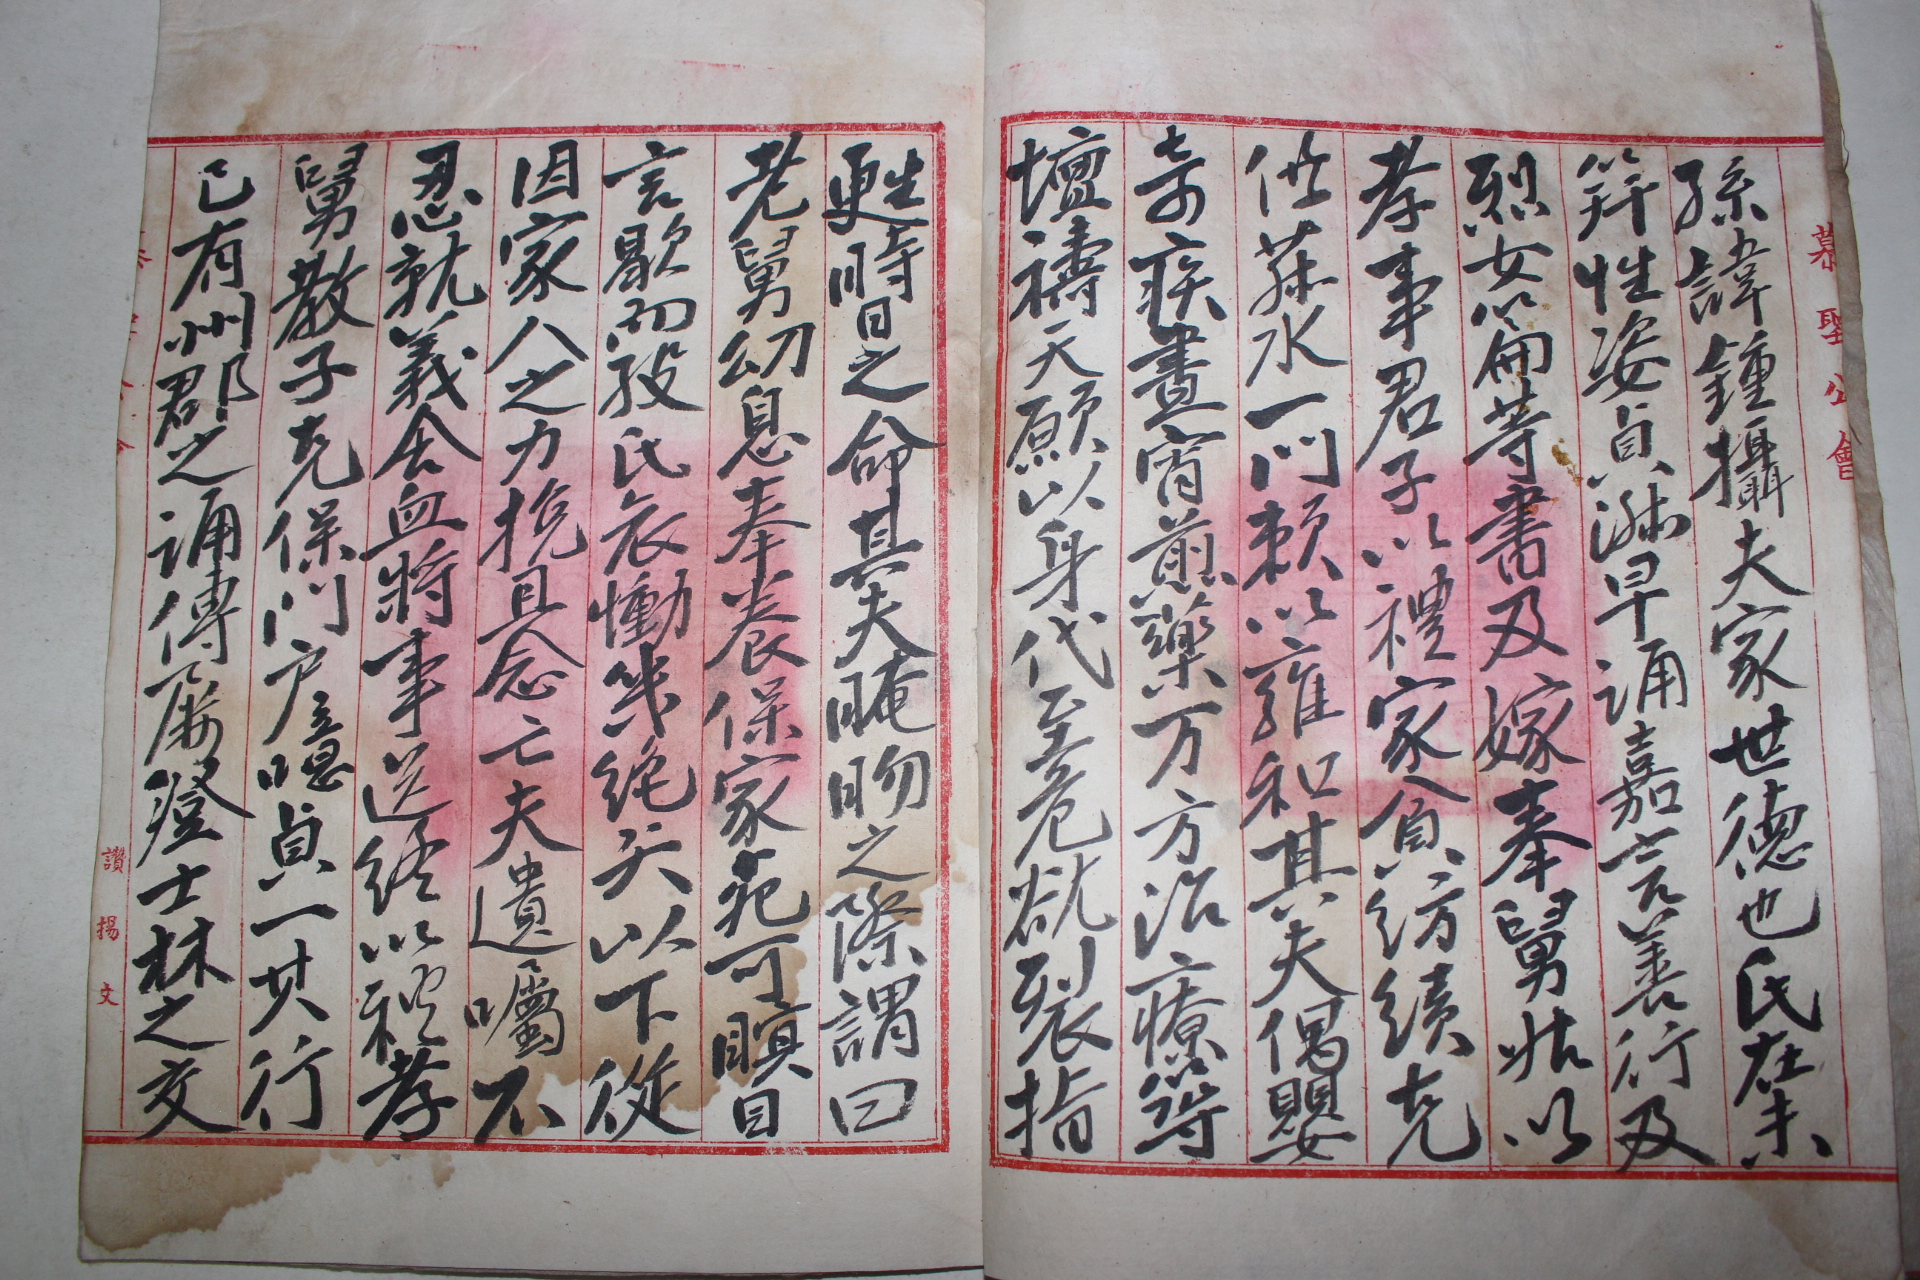 慕聖公會
孫諱鍾攝夫家世德也氏在未
笄性姿貞淑早誦嘉言善行及
烈女篇等書及嫁奉舅姑以
孝事君子以禮家貧紡績克
供菽水一門賴以雍和其夫偶嬰
奇疾晝宵煎藥万方治療築
壇禱天願以身代至危欲裂指
甦時日之命其夫晻昒之際謂曰
老舅幼息奉養保家範可瞑目
言歇而歿氏哀慟幾絶矢以下從
因家人之力挽且念亡夫遺囑不
忍就義含血將事送終以禮孝
舅教子克保門戶噫貞一其行
已有州郡之誦傳屢登士林之文
讚揚文